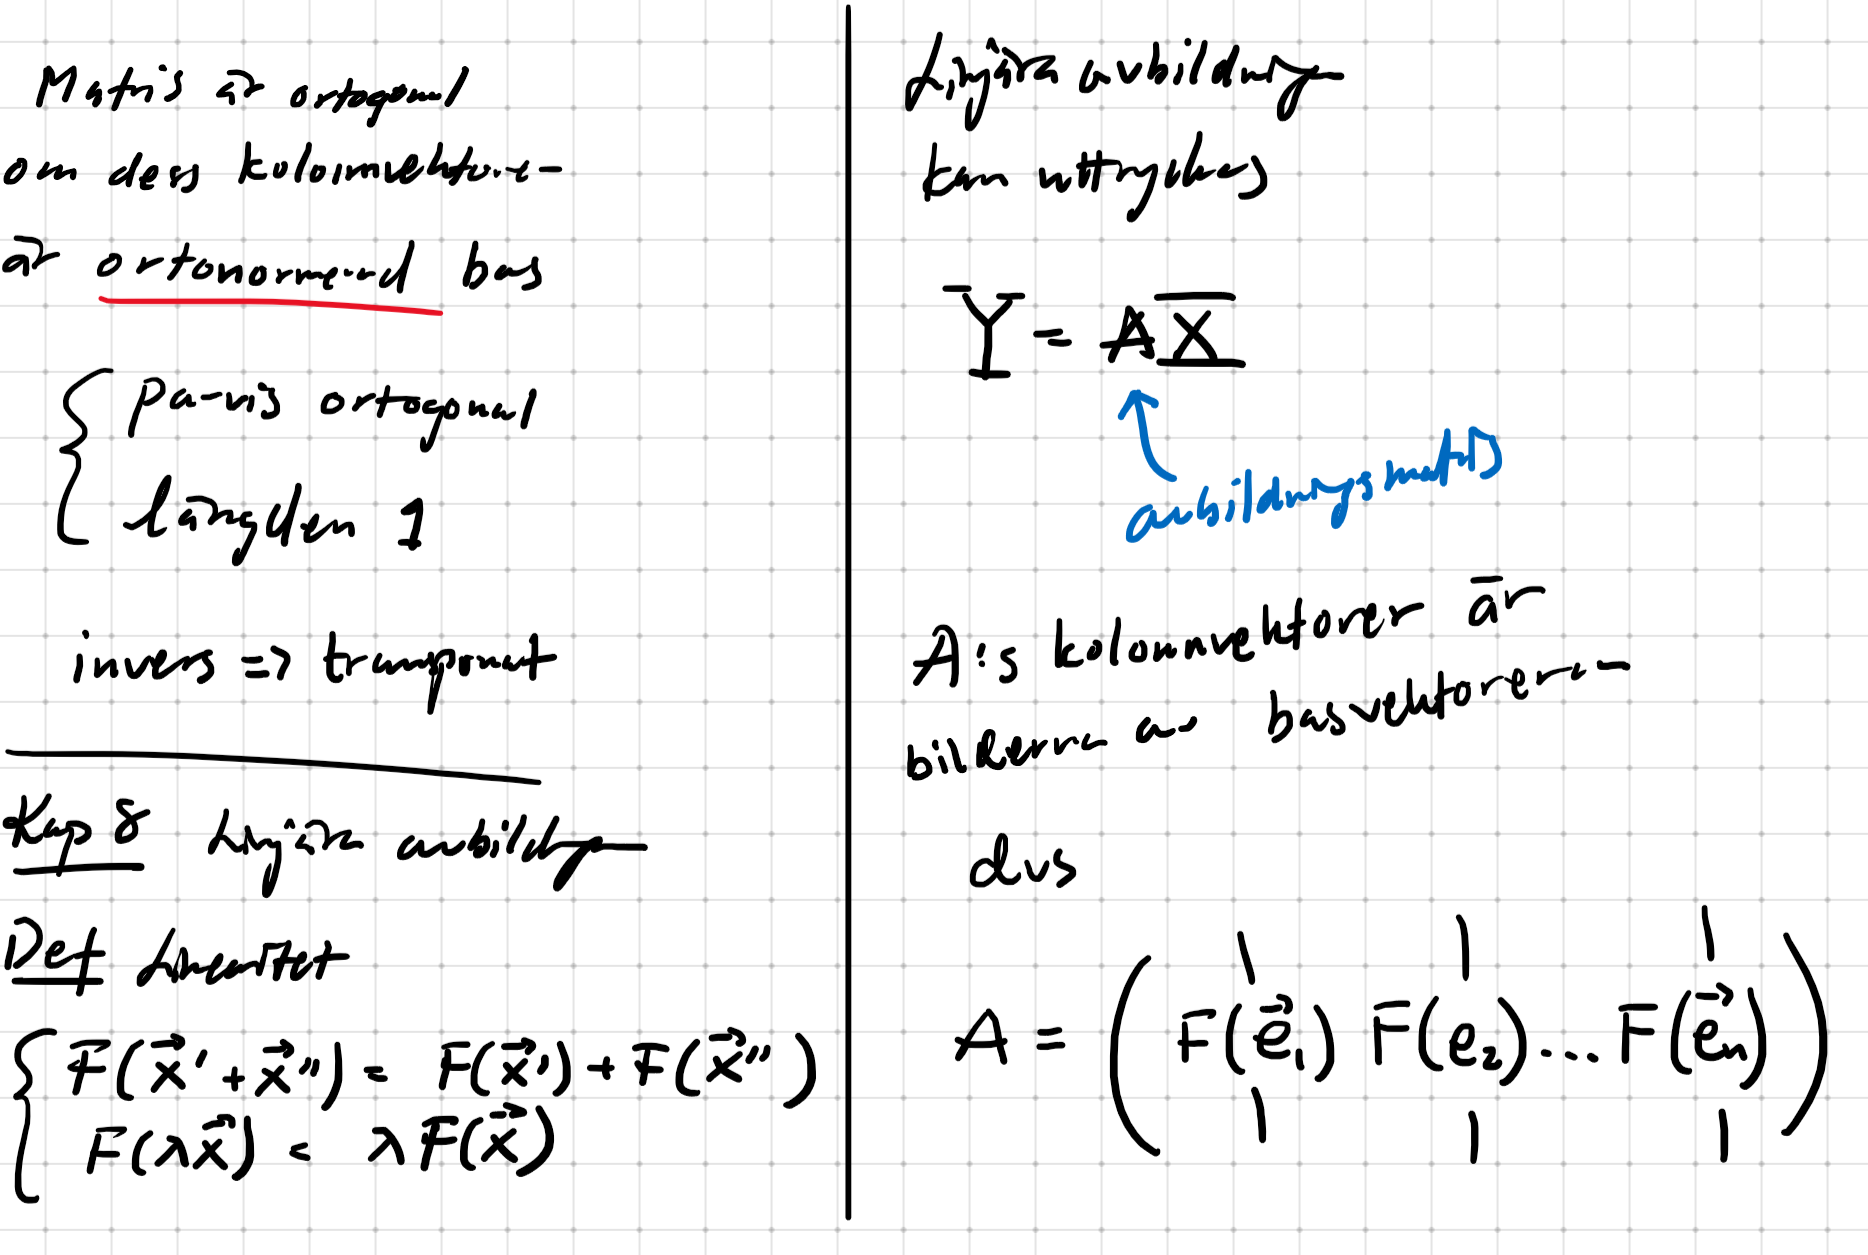 Matris är ortogonal
om dess kolonnvektorer
är ortonormerad bas
parvis ortogonal
längden 1
invers => transponat
Kap 8 Linjära avbildningar
Def Linearitet
F(x⃗' + x⃗'') = F(x⃗') + F(x⃗'')
F(λx⃗) = λF(x⃗)
Linjära avbildningar
kan uttryckas
Y = AX
avbildningsmatris
A:s kolonnvektorer är
bilderna av basvektorerna
dvs
A = ( F(e⃗₁) F(e₂) .... F(e⃗ₙ) )